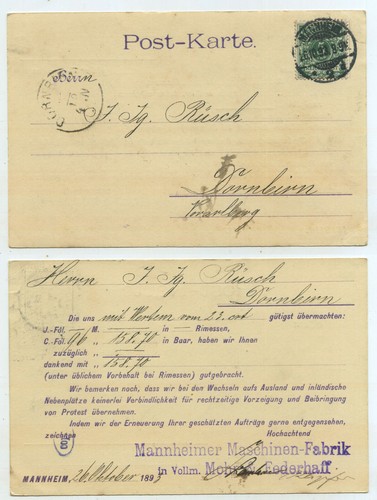 Post-Karte.
Herrn
J. Ig. Rüsch
Dornbirn
Vorarlberg
Herrn J. Ig. Rüsch
Dornbirn
Die uns mit Werthem vom 23. ort gütigst übermachten:
J.-Fdl. M. in Rimessen,
C.-Fdl. 96 „ 158.70 in Baar, haben wir Ihnen
zuzüglich „
dankend mit „ 158.70
(unter üblichem Vorbehalt bei Rimessen) gutgebracht.
Wir bemerken noch, dass wir bei den Wechseln aufs Ausland und inländische
Nebenplätze keinerlei Verbindlichkeit für rechtzeitige Vorzeigung und Beibringung
von Protest übernehmen.
Indem wir der Erneuerung Ihrer geschätzten Aufträge gerne entgegensehen,
zeichnen Hochachtend
Mannheimer Maschinen-Fabrik
in Vollm. Mohr & Federhaff
MANNHEIM, 26 Oktober 1893